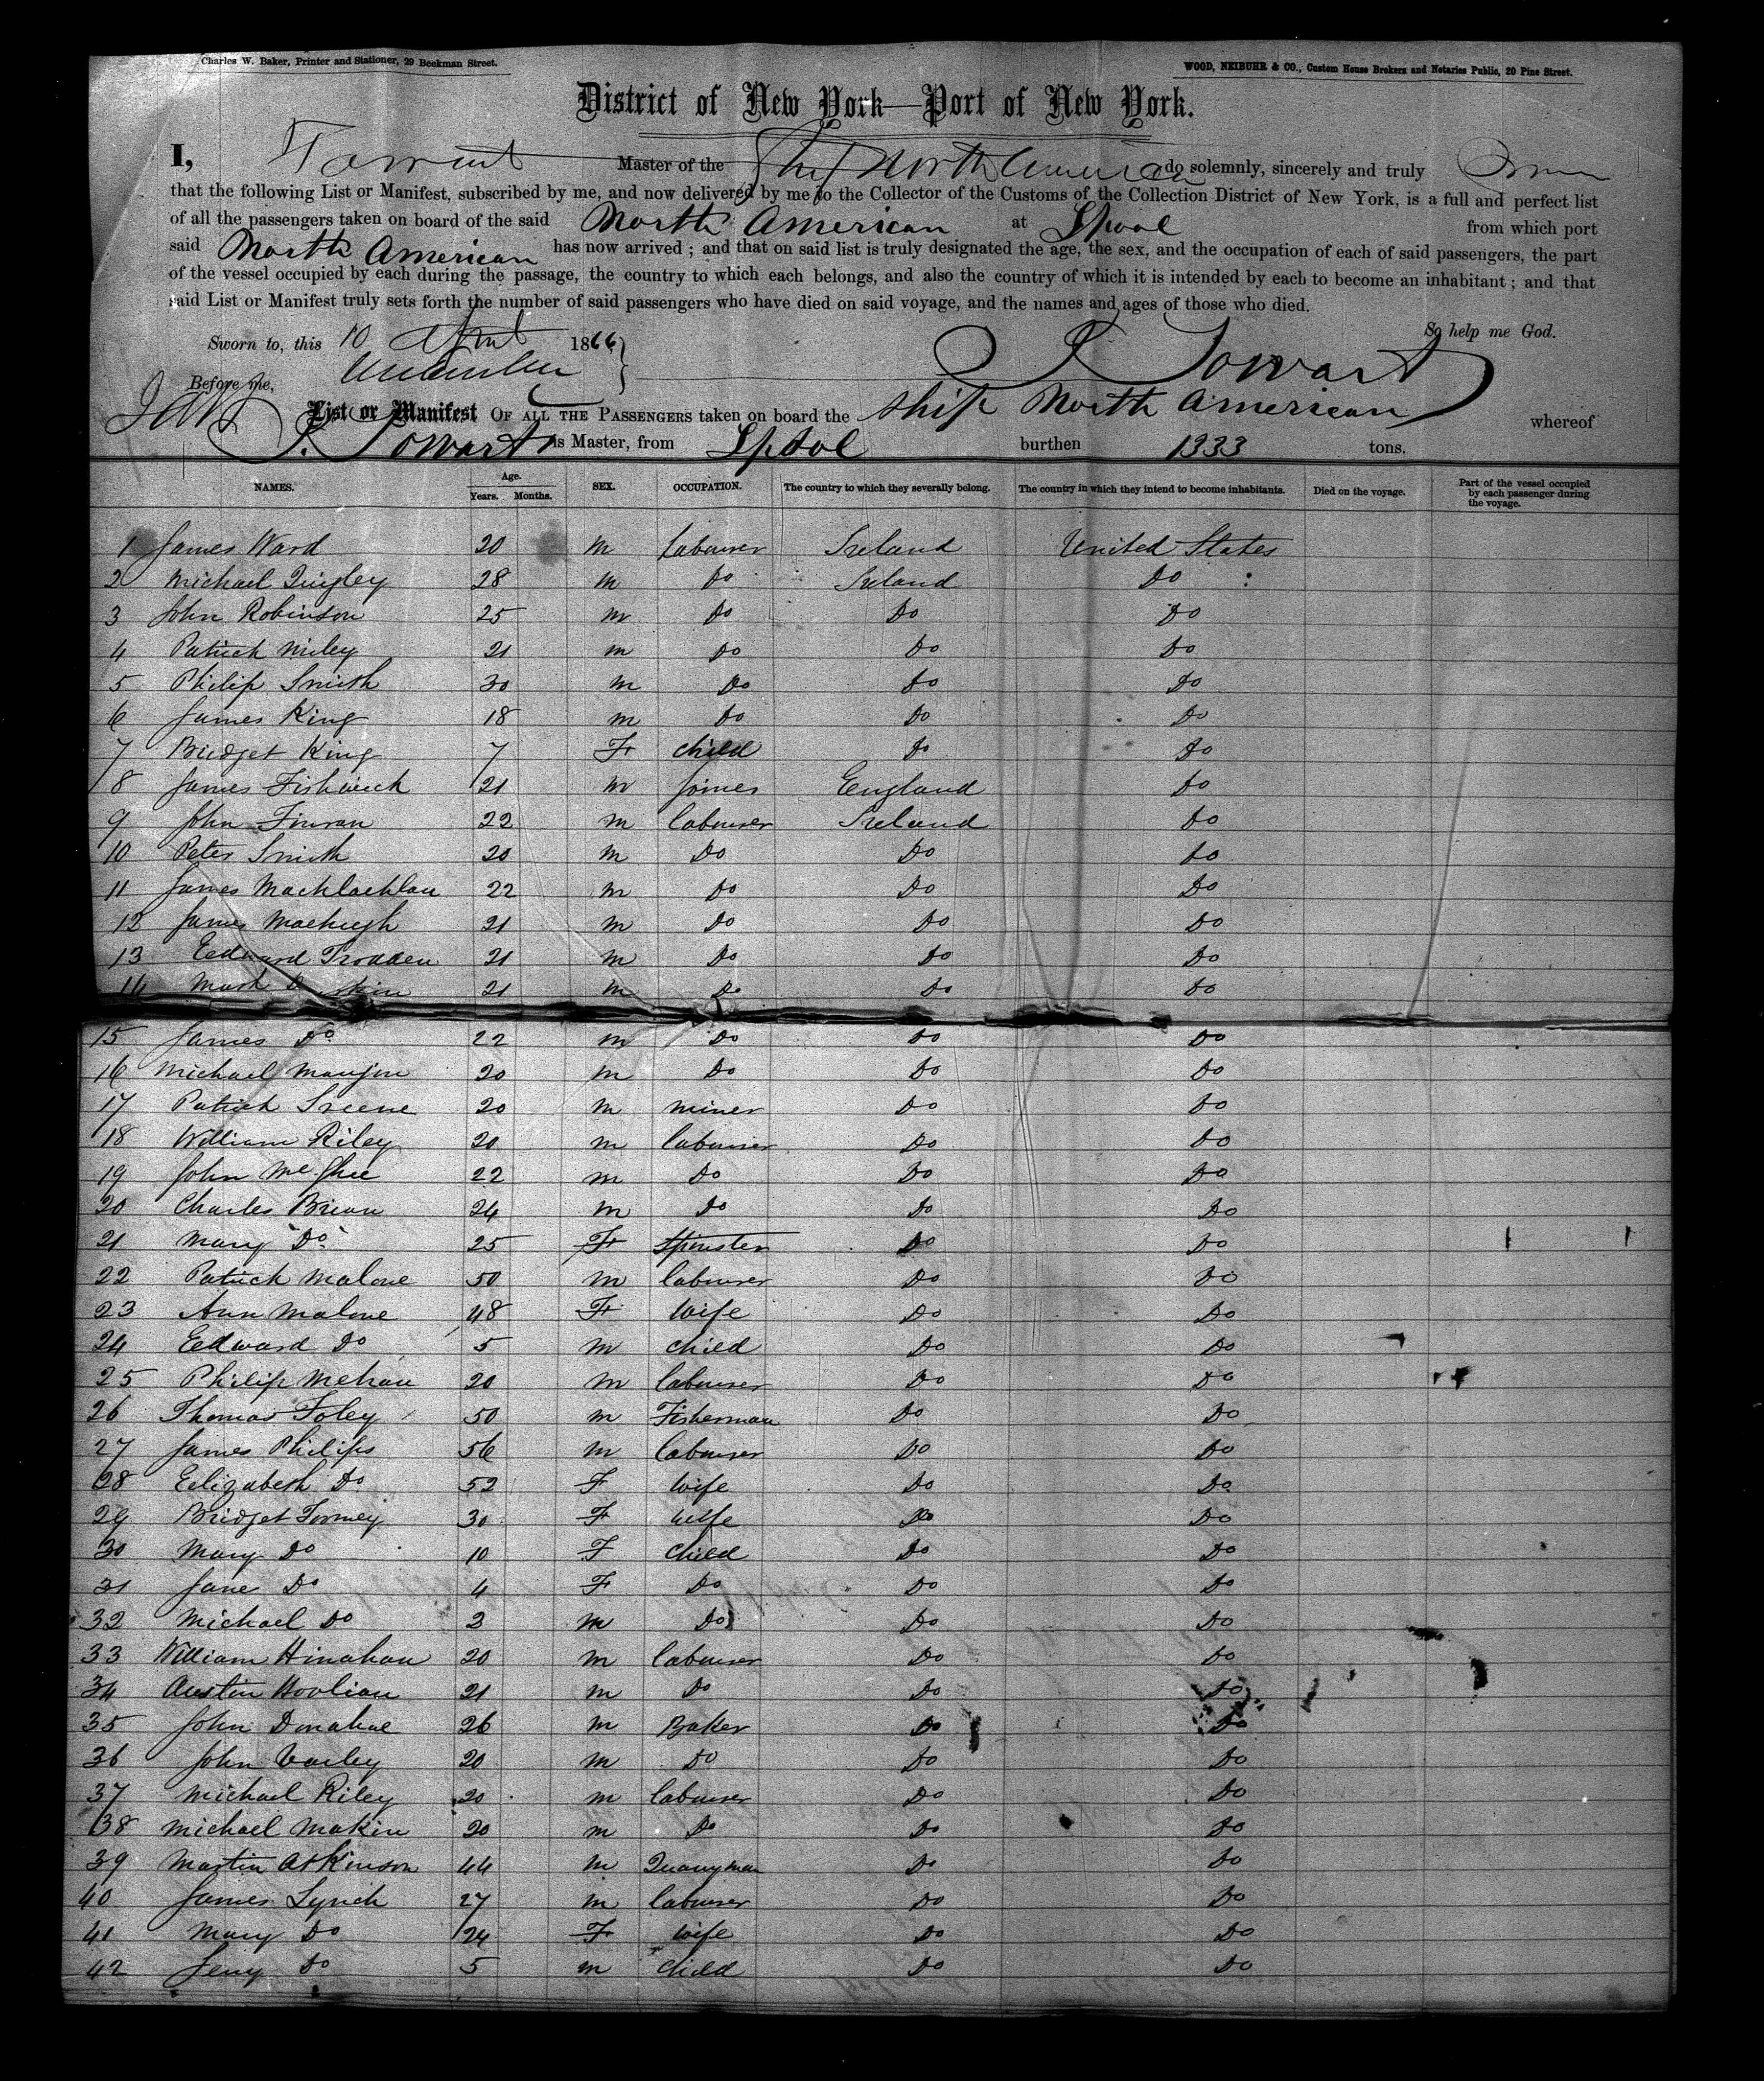 Charles W. Baker, Printer and Stationer, 29 Beekman Street.
WOOD, NEIBUHR & CO., Custom House Brokers and Notaries Public, 20 Pine Street.
District of New York—Port of New York.
I, Master of the Ship North American do solemnly, sincerely and truly
that the following List or Manifest, subscribed by me, and now delivered by me to the Collector of the Customs of the Collection District of New York, is a full and perfect list
of all the passengers taken on board of the said North American at Lpool from which port
said North American has now arrived; and that on said list is truly designated the age, the sex, and the occupation of each of said passengers, the part
of the vessel occupied by each during the passage, the country to which each belongs, and also the country of which it is intended by each to become an inhabitant; and that
said List or Manifest truly sets forth the number of said passengers who have died on said voyage, and the names and ages of those who died.
So help me God.
Sworn to, this 10 April 1866
Towart
Before me,
List or Manifest OF ALL THE PASSENGERS taken on board the ship North American whereof
Towart is Master, from Lpool burthen 1333 tons.
NAMES. Age. Years. Months. SEX. OCCUPATION. The country to which they severally belong. The country in which they intend to become inhabitants. Died on the voyage. Part of the vessel occupied by each passenger during the voyage.
1 James Ward 20 m Labourer Ireland United States
2 Michael Quigley 28 m Do Ireland Do
3 John Robinson 25 m Do Do Do
4 Patrick Miley 21 m Do Do Do
5 Philip Smith 30 m Do Do Do
6 James King 18 m Do Do Do
7 Bridget King 7 F child Do Do
8 James Fishwick 21 m Joiner England Do
9 John 22 m labourer Ireland Do
10 Peter Smith 20 m Do Do Do
11 James Machlachlan 22 m Do Do Do
12 James Machugh 21 m Do Do Do
13 Eedward Trodden 21 m Do Do Do
14 Mark 21 m Do Do Do
15 James Do 22 m Do Do Do
16 Michael 20 m Do Do Do
17 Patrick 20 m miner Do Do
18 William Riley 20 m labourer Do Do
19 John McGhee 22 m Do Do Do
20 Charles Brian 24 m Do Do Do
21 Mary Do 25 F Spinster Do Do
22 Patrick Malone 50 m labourer Do Do
23 Ann Malone 48 F Wife Do Do
24 Eedward Do 5 m child Do Do
25 Philip Mehan 20 m labourer Do Do
26 Thomas Foley 50 m Fisherman Do Do
27 James Philips 56 m labourer Do Do
28 Eelizabeth Do 52 F Wife Do Do
29 Bridget 30 F Wife Do Do
30 Mary Do 10 F child Do Do
31 Jane Do 4 F Do Do Do
32 Michael Do 3 m Do Do Do
33 William Hinahan 20 m labourer Do Do
34 Austin Hoolian 21 m Do Do Do
35 John Donahue 26 m Baker Do Do
36 John Varley 20 m Do Do Do
37 Michael Riley 20 m labourer Do Do
38 Michael Makin 20 m Do Do Do
39 Martin Atkinson 44 m Quarryman Do Do
40 James Lynch 27 m labourer Do Do
41 Mary Do 24 F Wife Do Do
42 Do 5 m child Do Do